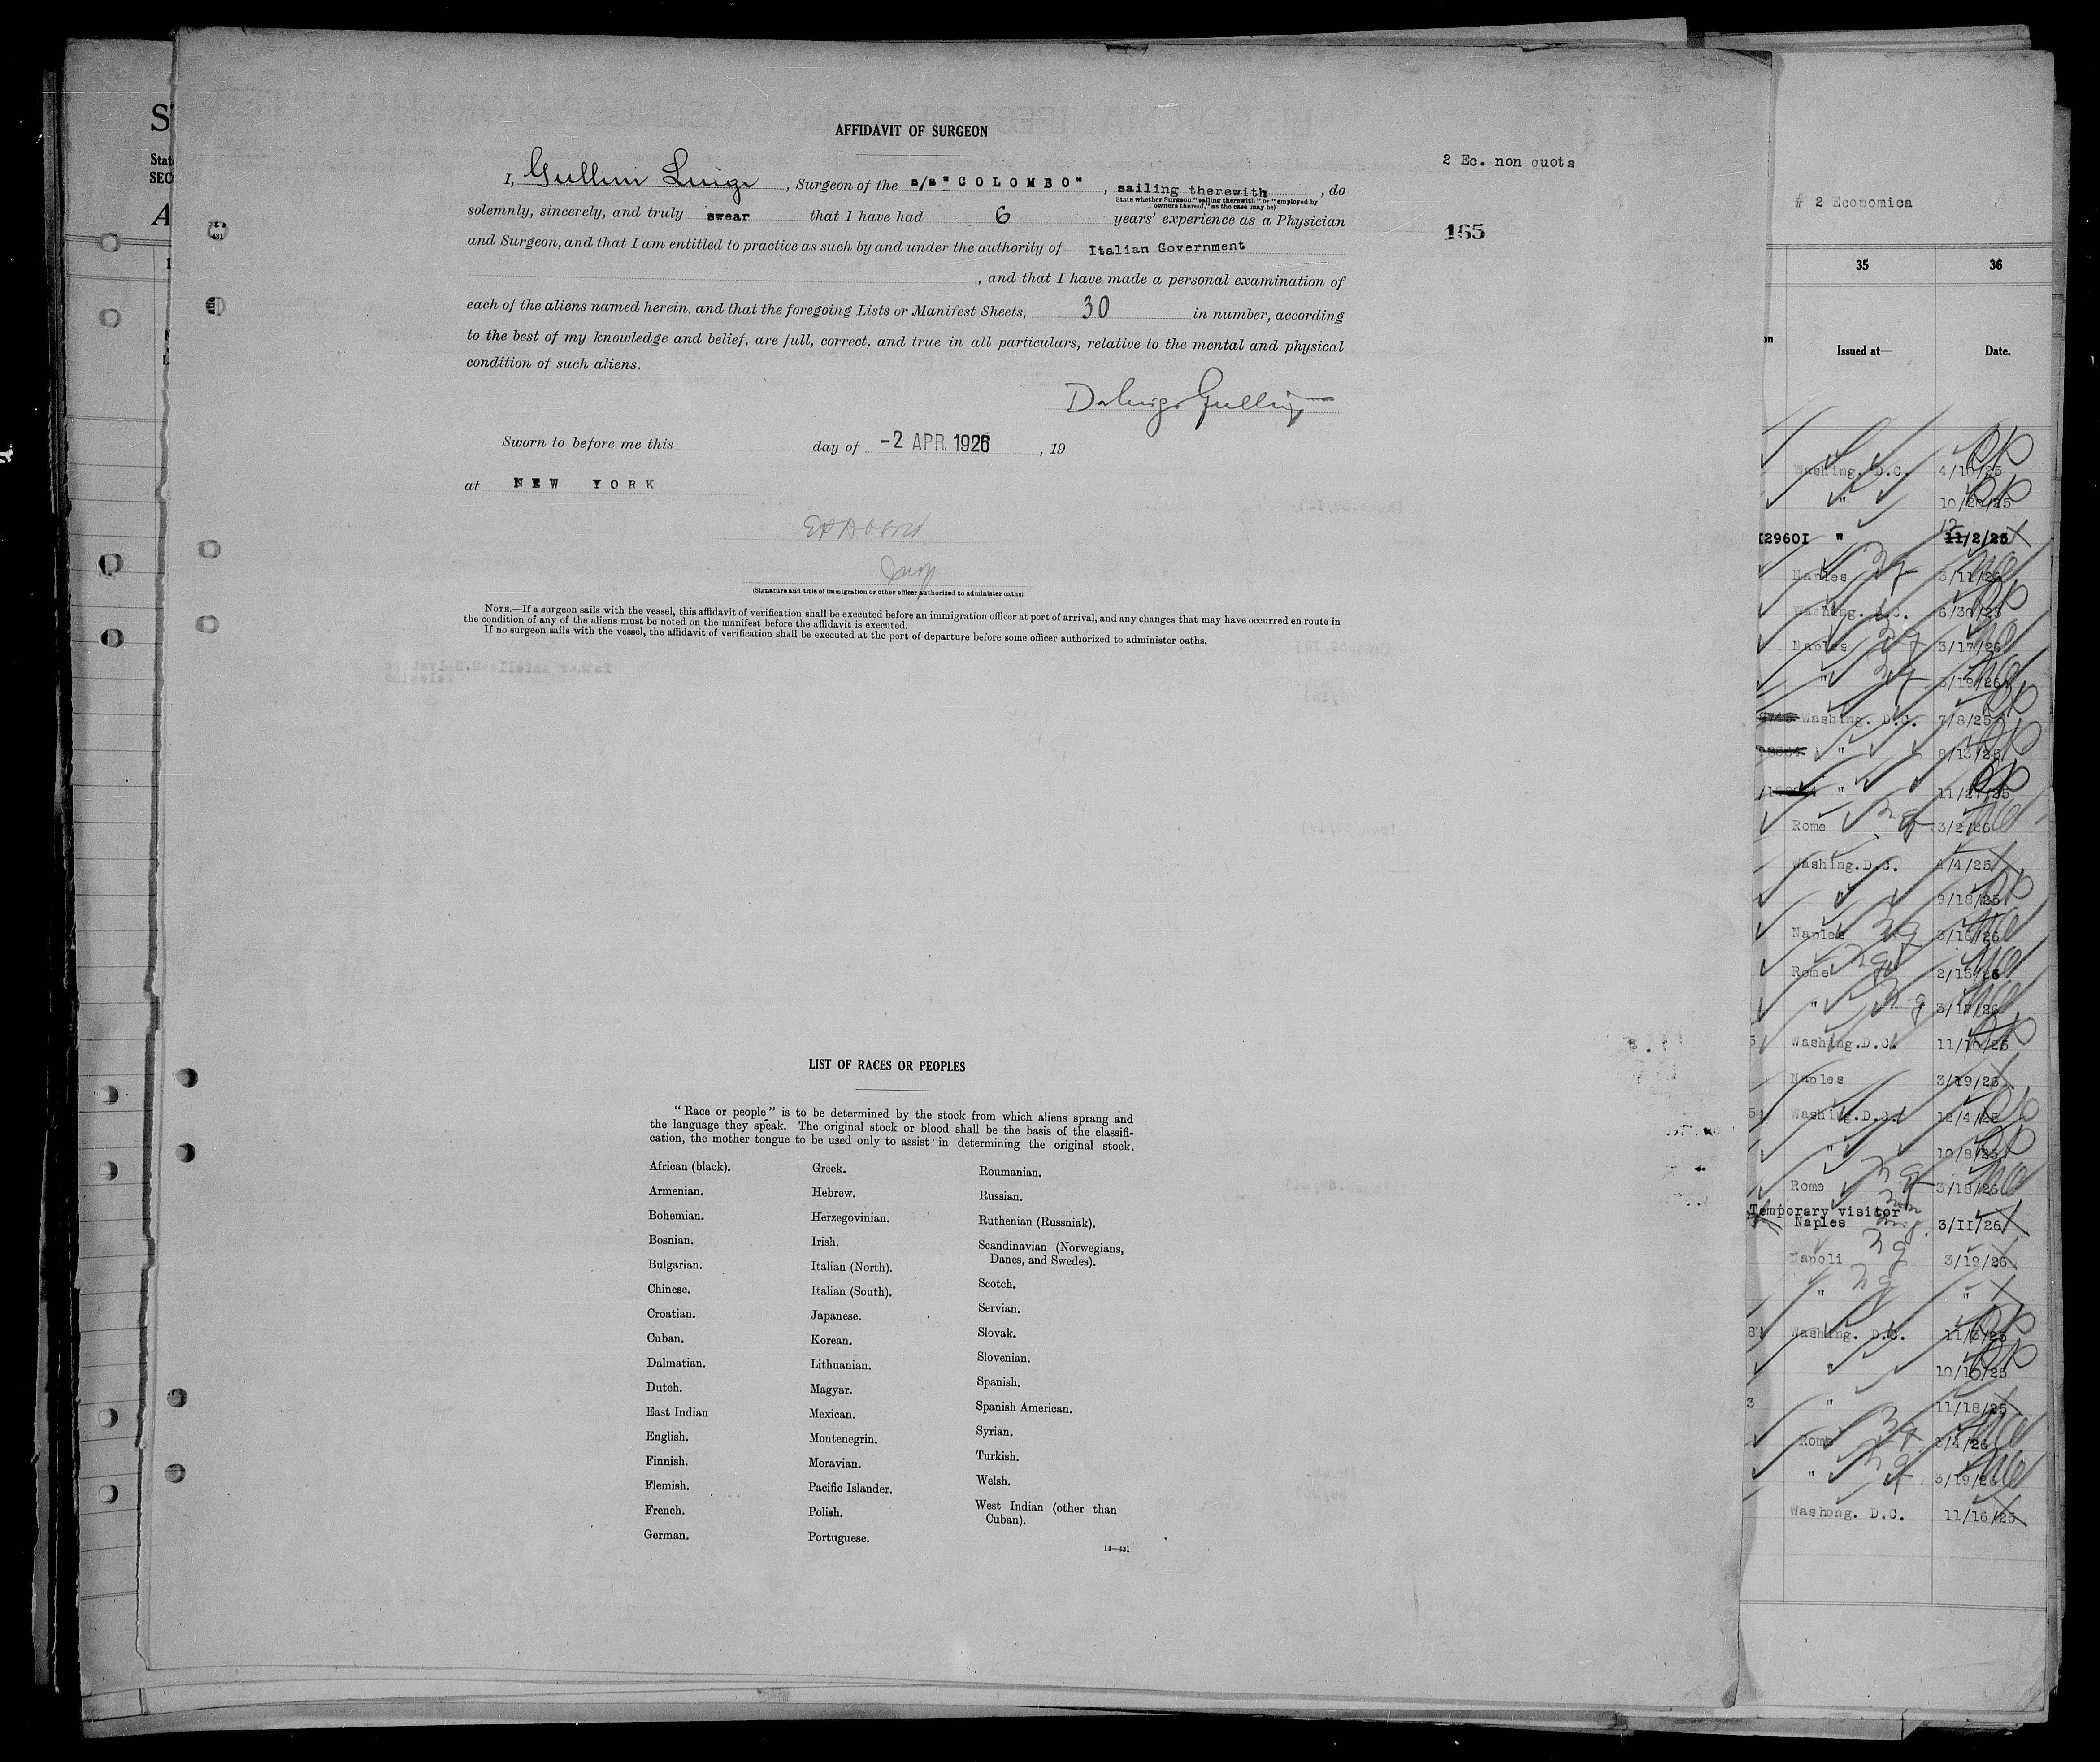 AFFIDAVIT OF SURGEON
2 Ec. non quota
I, Gullini Luigi, Surgeon of the s/s "COLOMBO", sailing therewith, do
State whether Surgeon "sailing therewith" or "employed by
owners thereof," as the case may be)
solemnly, sincerely, and truly swear that I have had 6 years' experience as a Physician
165
and Surgeon, and that I am entitled to practice as such by and under the authority of Italian Government
, and that I have made a personal examination of
each of the aliens named herein, and that the foregoing Lists or Manifest Sheets, 30 in number, according
to the best of my knowledge and belief, are full, correct, and true in all particulars, relative to the mental and physical
condition of such aliens.
Sworn to before me this day of -2 APR. 1926, 19
at NEW YORK
(Signature and title of immigration or other officer authorized to administer oaths)
NOTE.—If a surgeon sails with the vessel, this affidavit of verification shall be executed before an immigration officer at port of arrival, and any changes that may have occurred en route in
the condition of any of the aliens must be noted on the manifest before the affidavit is executed.
If no surgeon sails with the vessel, the affidavit of verification shall be executed at the port of departure before some officer authorized to administer oaths.
LIST OF RACES OR PEOPLES
"Race or people" is to be determined by the stock from which aliens sprang and
the language they speak. The original stock or blood shall be the basis of the classifi-
cation, the mother tongue to be used only to assist in determining the original stock.
African (black).
Armenian.
Bohemian.
Bosnian.
Bulgarian.
Chinese.
Croatian.
Cuban.
Dalmatian.
Dutch.
East Indian
English.
Finnish.
Flemish.
French.
German.
Greek.
Hebrew.
Herzegovinian.
Irish.
Italian (North).
Italian (South).
Japanese.
Korean.
Lithuanian.
Magyar.
Mexican.
Montenegrin.
Moravian.
Pacific Islander.
Polish.
Portuguese.
Roumanian.
Russian.
Ruthenian (Russniak).
Scandinavian (Norwegians,
Danes, and Swedes).
Scotch.
Servian.
Slovak.
Slovenian.
Spanish.
Spanish American.
Syrian.
Turkish.
Welsh.
West Indian (other than
Cuban).
14—431
# 2 Economica
35 36
Issued at— Date.
Washing. D.C. 4/10/25
" 10/20/25
12960I " 12 11/2/25
Naples 3/11/26
Washing. D.C. 6/30/25
Naples 3/17/26
" 3/19/26
Washing. D.C. 7/8/25
" 8/13/25
" 11/27/25
Rome 3/2/26
Washing.D.C. 4/4/25
9/18/25
Naples 3/16/26
Rome 2/15/26
" 3/17/26
Washing.D.C. 11/10/25
Naples 3/19/26
Washing.D.C. 12/4/25
" 10/8/25
Rome 3/18/26
Temporary visitor
Naples 3/II/26
Napoli 3/19/26
" "
Washing. D.C. 11/3/25
" 10/10/25
" 11/18/25
Rome 3/4/26
" 3/19/26
Washong. D.C. 11/16/25